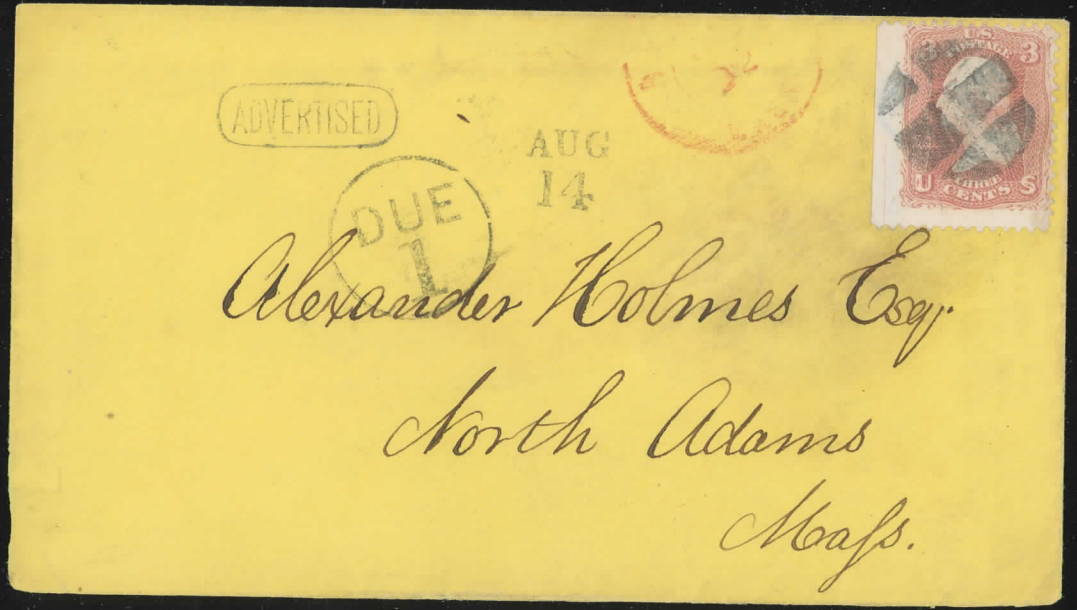 ADVERTISED
AUG
14
DUE
1
3 U.S. 3
POSTAGE
U THREE S
CENTS
Alexander Holmes Esqr.
North Adams
Maſs.